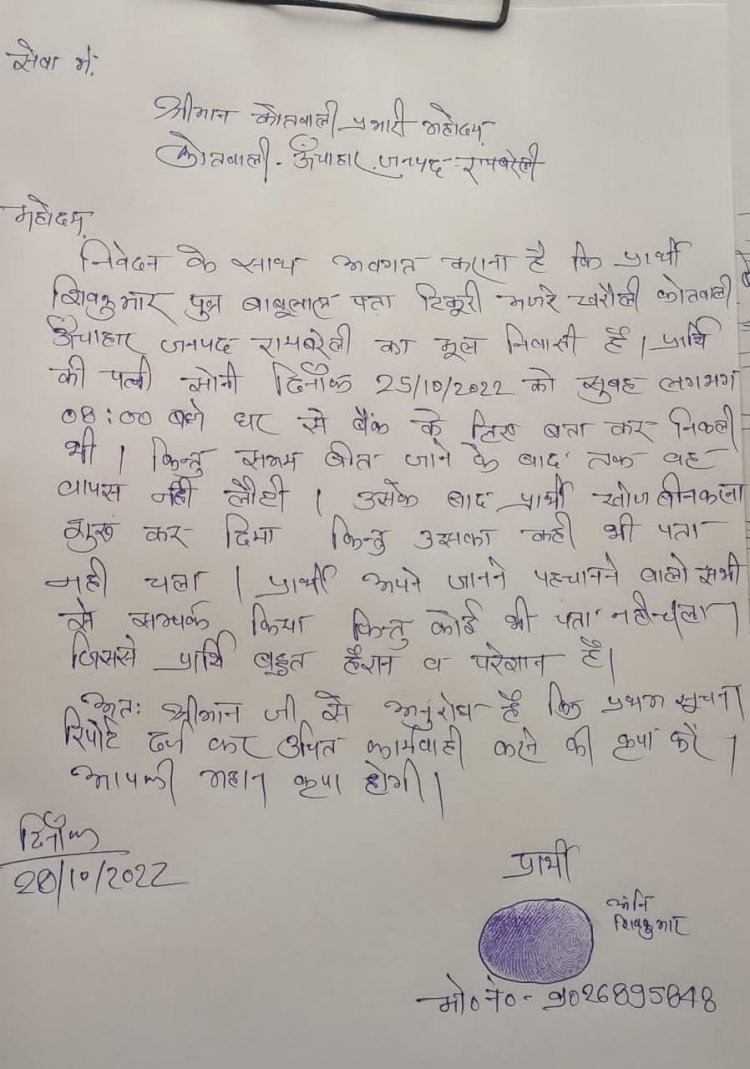 सेवा में,
श्रीमान कोतवाली प्रभारी महोदय,
कोतवाली - ऊँचाहार, जनपद - रायबरेली
महोदय,
निवेदन के साथ अवगत कराना है कि प्रार्थी
शिवकुमार पुत्र बाबूलाल पता टिकुरी मजरे खरौली कोतवाली
ऊँचाहार जनपद रायबरेली का मूल निवासी है। प्रार्थि
की पत्नी सोनी दिनाँक 25/10/2022 को सुबह लगभग
08:00 बजे घर से बैंक के लिए बता कर निकली
थी। किन्तु समय बीत जाने के बाद तक वह
वापस नही लौटी। उसके बाद प्रार्थी खोजबीन करना
शुरू कर दिया किन्तु उसका कही भी पता
नही चला। प्रार्थी अपने जानने पहचानने वालो सभी
से सम्पर्क किया किन्तु कोई भी पता नही चला।
जिससे प्रार्थि बहुत हैरान व परेशान है।
अतः श्रीमान जी से अनुरोध है कि प्रथम सूचना
रिपोर्ट दर्ज कर उचित कार्यवाही करने की कृपा करें।
आपकी महान कृपा होगी।
दिनाँक
28/10/2022
प्रार्थी
शिवकुमार
मो० नं० - 9026895848